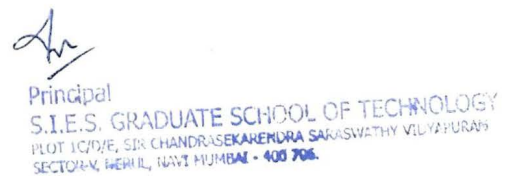 Principal
S.I.E.S. GRADUATE SCHOOL OF TECHNOLOGY
PLOT 1C/D/E, SIR CHANDRASEKARENDRA SARASWATHY VIDYAPURAM
SECTOR-V, NERUL, NAVI MUMBAI - 400 706.